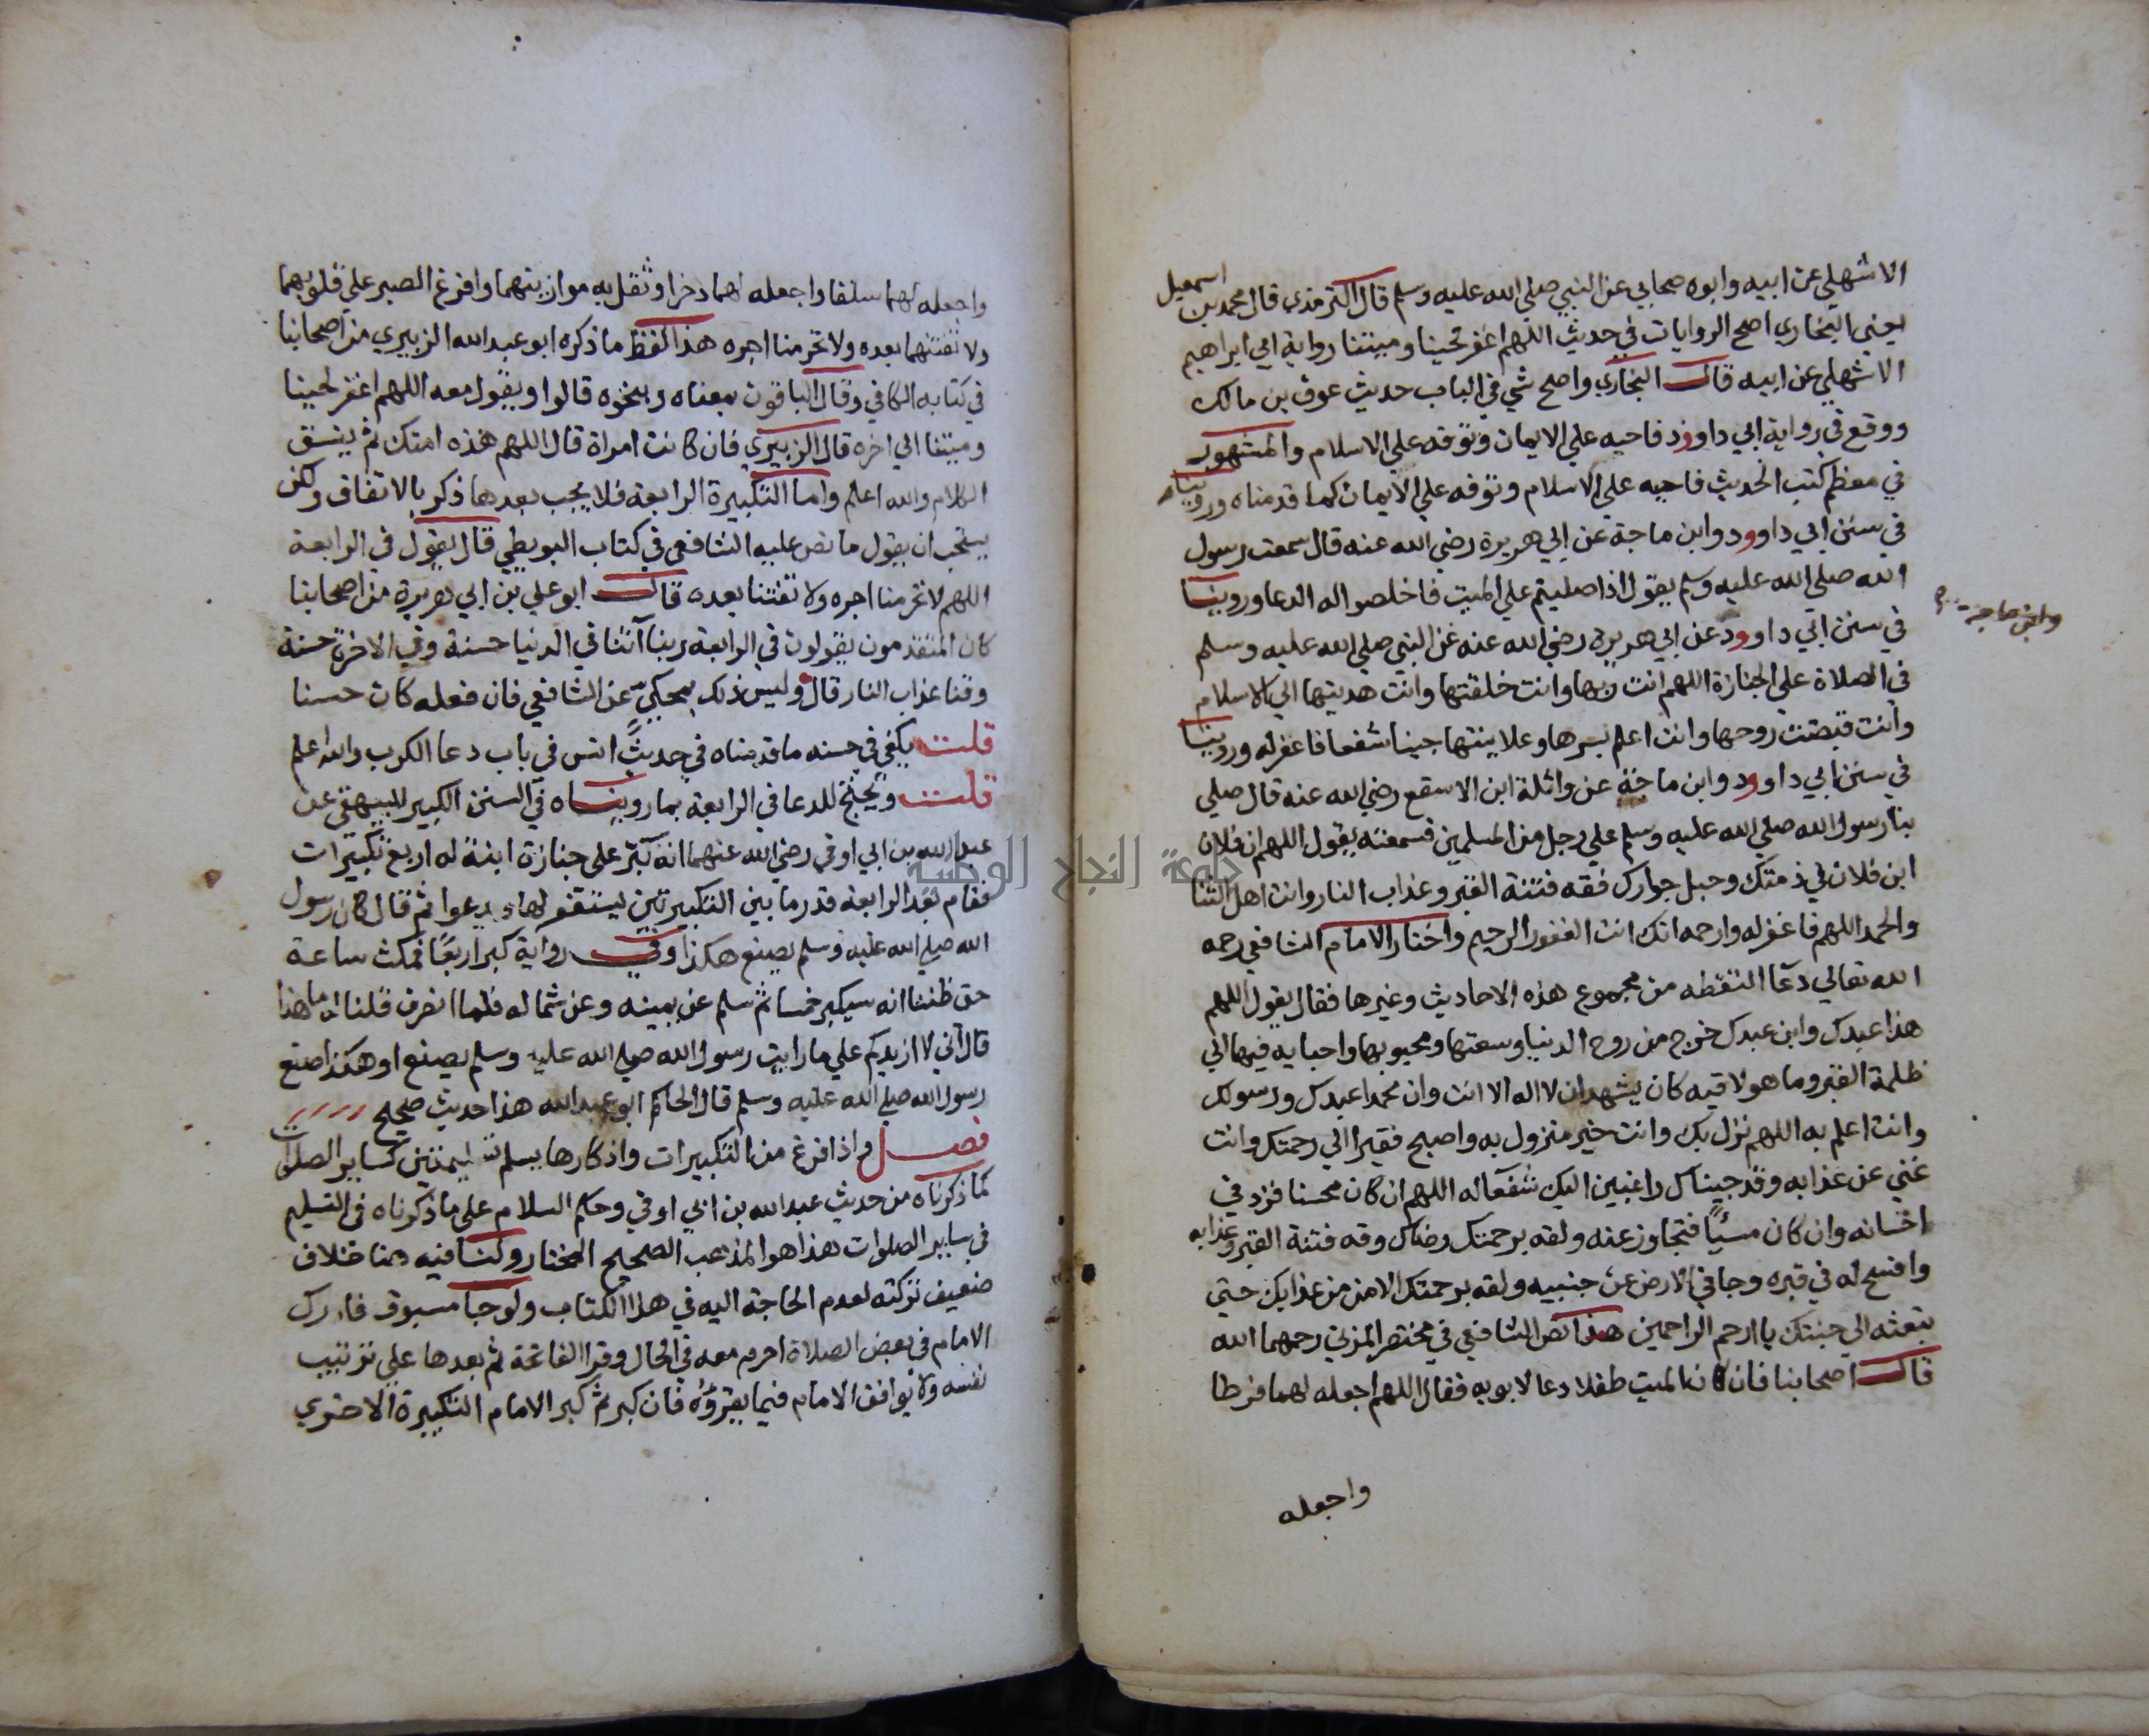 الاشهلي عن ابيه وابوه صحابي عن النبي صلي الله عليه وسلم قال الترمذي قال محمد بن اسمعيل
يعني البخاري اصح الروايات في حديث اللهم اغفر لحينا وميتنا رواية ابي ابراهيم
الاشهلي عن ابيه قال البخاري واصح شي في الباب حديث عوف بن مالك
ووقع في رواية ابي داوود فاحيه علي الايمان وتوفه علي الاسلام والمشهور
في معظم كتب الحديث فاحيه علي الاسلام وتوفه علي الايمان كما قدمناه وروينا
في سنن ابي داوود وابن ماجة عن ابي هريرة رضي الله عنه قال سمعت رسول
الله صلي الله عليه وسلم يقول اذا صليتم علي الميت فاخلصوا له الدعا وروينا
وابن ماجة
في سنن ابي داوود عن ابي هريرة رضي الله عنه عن النبي صلي الله عليه وسلم
في الصلاة علي الجنازة اللهم انت ربها وانت خلقتها وانت هديتها الي الاسلام
وانت قبضت روحها وانت اعلم بسرها وعلانيتها جينا شفعا فاغفر له وروينا
في سنن ابي داوود وابن ماجة عن واثلة ابن الاسقع رضي الله عنه قال صلي
بنا رسول الله صلي الله عليه وسلم علي رجل من المسلمين فسمعته يقول اللهم ان فلان
ابن فلان في ذمتك وحبل جوارك فقه فتنة القبر وعذاب النار وانت اهل الثنا
والحمد اللهم فاغفر له وارحمه انك انت الغفور الرحيم واختار الامام الشافعي رحمه
الله تعالي دعآ التقطه من مجموع هذه الاحاديث وغيرها فقال يقول اللهم
هذا عبدك وابن عبدك خرج من روح الدنيا وسعتها ومحبوبها واحبايه فيها الي
ظلمة القبر وما هو لاقيه كان يشهد ان لا اله الا انت وان محمدا عبدك ورسولك
وانت اعلم به اللهم نزل بك وانت خير منزول به واصبح فقيرا الي رحمتك وانت
غني عن عذابه وقد جيناك راغبين اليك شفعآ له اللهم ان كان محسنا فزد في
احسانه وان كان مسيًا فتجاوز عنه ولقه برحمتك رضاك وقه فتنة القبر وعذابه
وافسح له في قبره وجافي الارض عن جنبيه ولقه برحمتك الامن من عذابك حتي
تبعثه الي جنتك يا ارحم الراحمين هذا نص الشافعي في مختصر المزني رحمهما الله
قال اصحابنا فان كان الميت طفلا دعا لابويه فقال اللهم اجعله لهما فرطا
واجعله
واجعله لهما سلفا واجعله لهما ذخرا وثقل به موازينهما وافرغ الصبر علي قلوبهما
ولا تفتنهما بعده ولا تحرمنا اجره هذا لفظ ما ذكره ابو عبد الله الزبيري من اصحابنا
في كتابه الكافي وقال الباقون بمعناه وبنحوه قالوا ويقول معه اللهم اغفر لحينا
وميتنا الي اخره قال الزبيري فان كانت امراة قال اللهم هذه امتك ثم ينسق
الكلام والله اعلم واما التكبيرة الرابعة فلا يجب بعدها ذكر بالاتفاق ولكن
يستحب ان يقول ما نص عليه الشافعي في كتاب البويطي قال يقول في الرابعة
اللهم لا تحرمنا اجره ولا تفتنا بعده قال ابو علي بن ابي هريرة من اصحابنا
كان المتقدمون يقولون في الرابعة ربنا آتنا في الدنيا حسنة وفي الاخرة حسنة
وقنا عذاب النار قال وليس ذلك بمحكي عن الشافعي فان فعله كان حسنا
قلت يكفي في حسنه ما قدمناه في حديث انس في باب دعا الكرب والله اعلم
قلت ويحتج للدعا في الرابعة بما رويناه في السنن الكبير للبيهقي عن
عبد الله بن ابي اوفي رضي الله عنهما انه كبر علي جنازة ابنة له اربع تكبيرات
فقام بعد الرابعة قدر ما بين التكبيرتين يستغفر لها ويدعوا ثم قال كان رسول
الله صلي الله عليه وسلم يصنع هكذا وفي رواية كبر اربعًا فمكث ساعة
حتي ظننا انه سيكبر خمسا ثم سلم عن يمينه وعن شماله فلما انصرف قلنا له ما هذا
قال اني لا ازيدكم علي ما رايت رسول الله صلي الله عليه وسلم يصنع او هكذا صنع
رسول الله صلي الله عليه وسلم قال الحاكم ابو عبد الله هذا حديث صحيح
فصل واذا فرغ من التكبيرات واذكارها يسلم تسليمتين كساير الصلوات
كما ذكرناه من حديث عبد الله بن ابي اوفي وحكم السلام علي ما ذكرناه في التسليم
في ساير الصلوات هذا هو المذهب الصحيح المختار ولنا فيه هنا خلاف
ضعيف تركته لعدم الحاجة اليه في هذا الكتاب ولو جا مسبوق فادرك
الامام في بعض الصلاة احرم معه في الحال وقرا الفاتحة ثم بعدها علي ترتيب
نفسه ولا يوافق الامام فيما يقرؤه فان كبر ثم كبر الامام التكبيرة الاخري
جامعة النجاح الوطنية